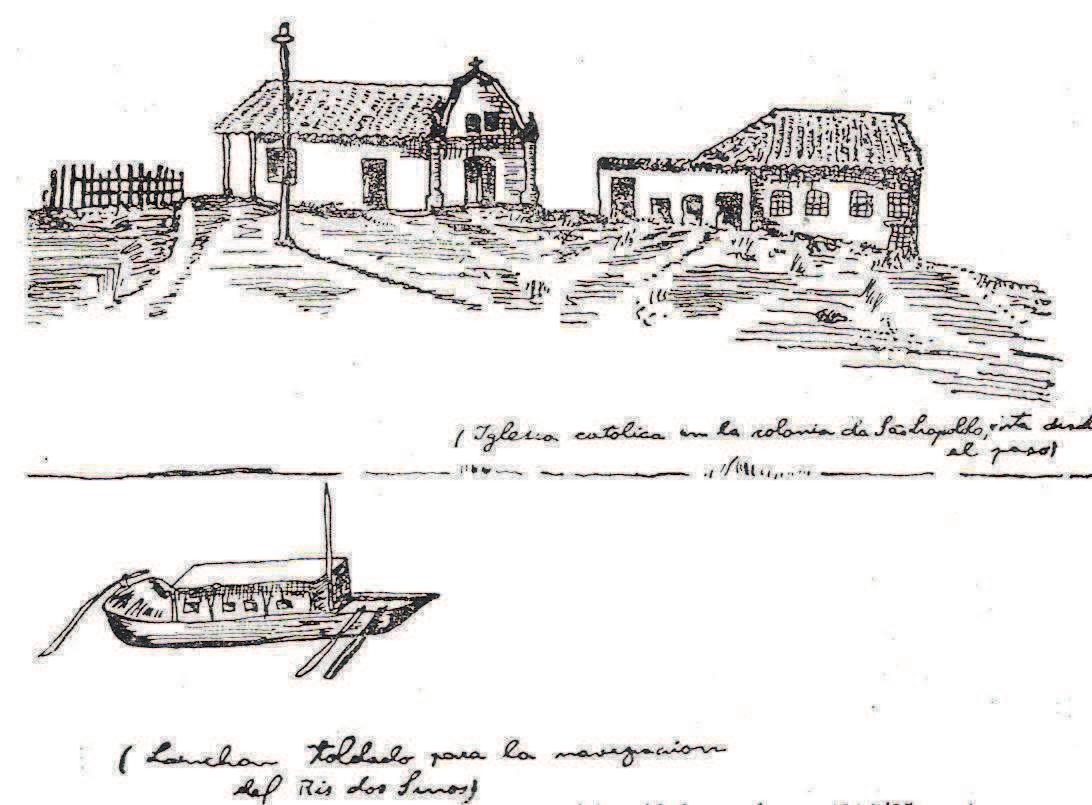 ( Iglesia catolica en la colonia da São Leopoldo, vista desde
el paso)
( Lanchan toldado para la navegacion
del Rio dos Sinos)